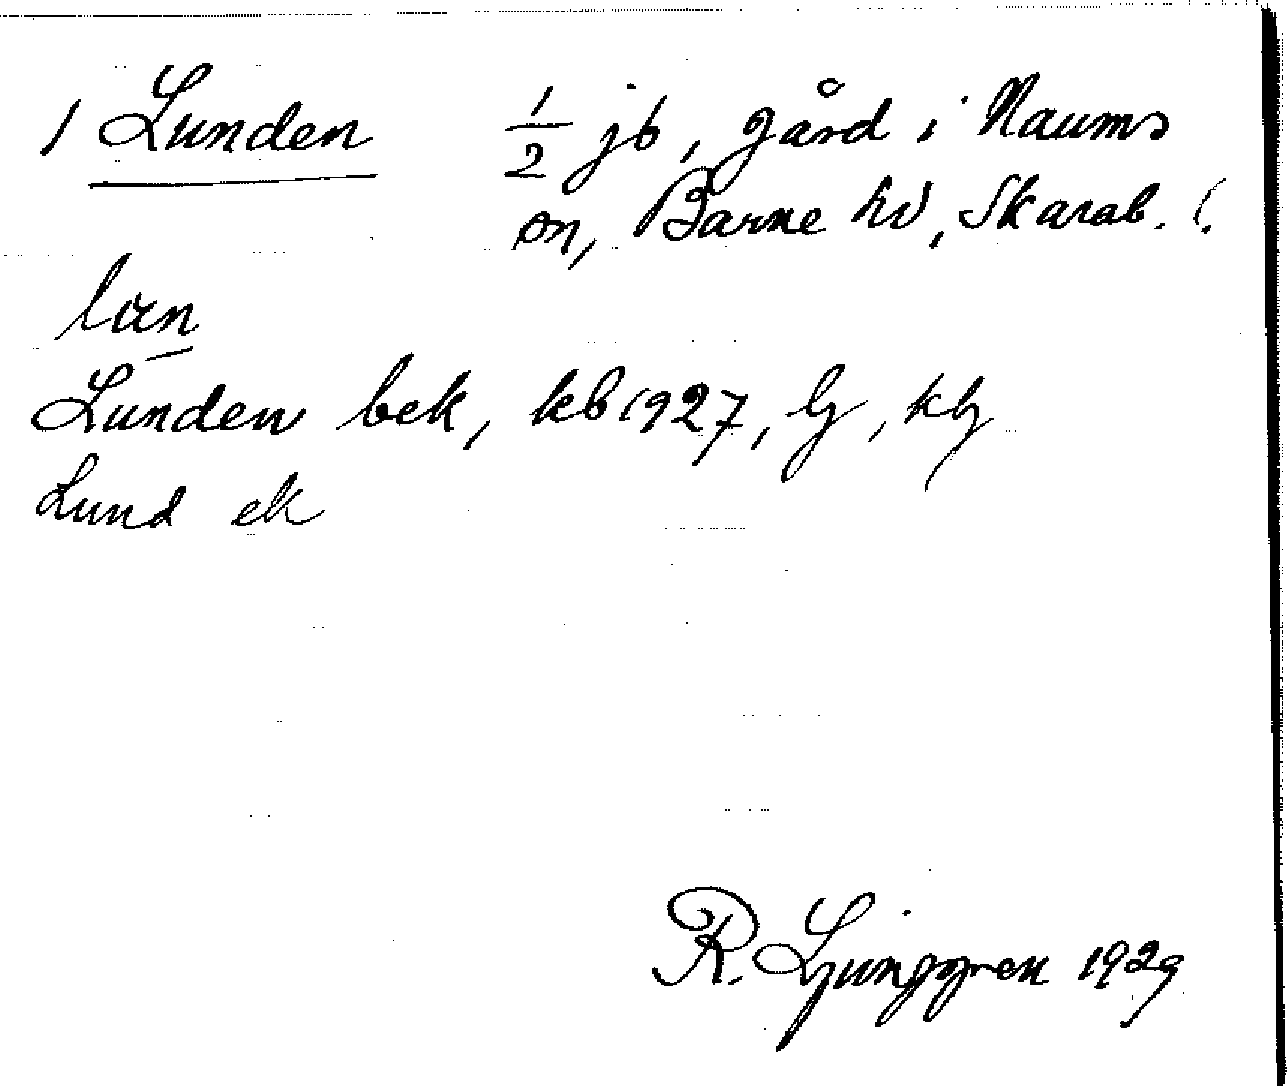 1 Lunden 1/2 jb, gård i Naums
sn, Barne hd, Skarab. l.
Lunden bek, kb 1927, lj, klj
Lund ek
R. Ljunggren 1929